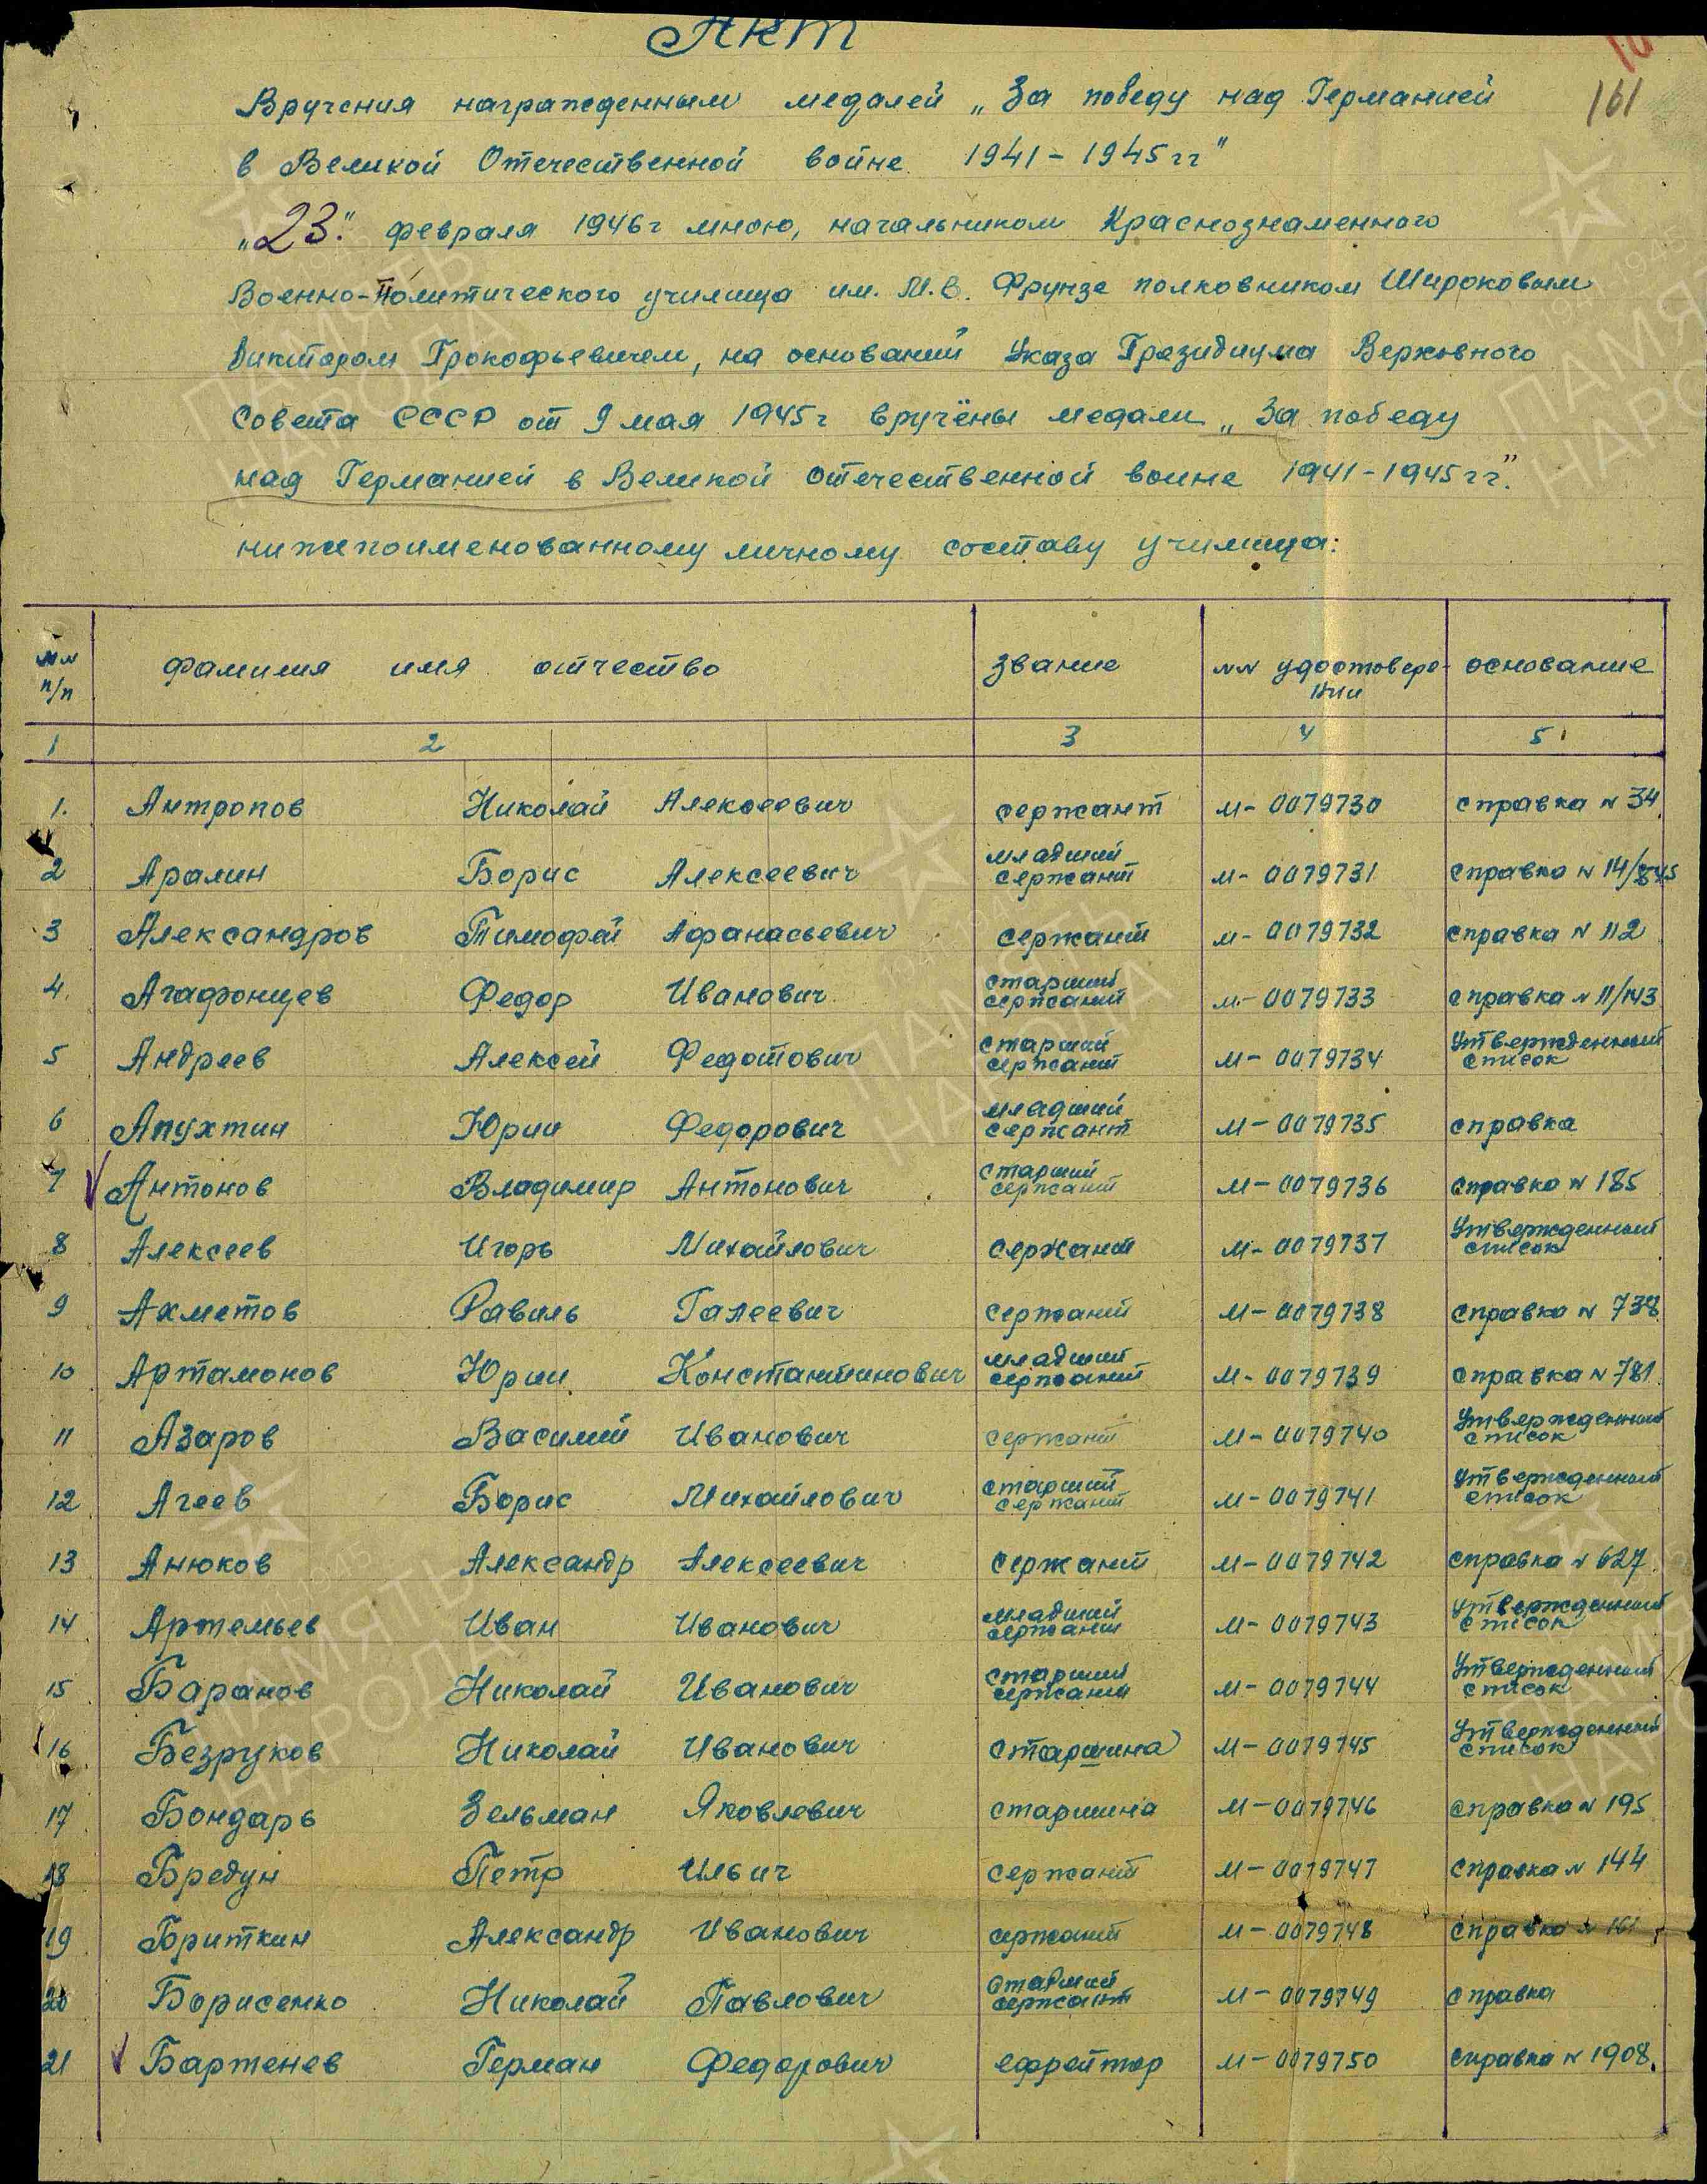 Акт
161
Вручения награжденным медалей „За победу над Германией
в Великой Отечественной войне 1941-1945 гг"
„23." февраля 1946 г мною, начальником Краснознаменного
Военно-Политического училища им. М.В. Фрунзе полковником Широковым
Виктором Прокофьевичем, на основании Указа Президиума Верховного
Совета СССР от 9 мая 1945 г вручёны медали „За победу
над Германией в Великой Отечественной воине 1941-1945 гг."
нижепоименованному личному составу училища:
№№ п/п фамилия имя отчество звание №№ удостовере- нии основание
1 2 3 4 5
1. Антропов Николай Алексеевич сержант М-0079730 справка № 34
2 Аралин Борис Алексеевич младший сержант М-0079731 справка № 14/845
3 Александров Тимофей Афанасьевич сержант М-0079732 справка № 112
4. Агафонцев Федор Иванович старший сержант М-0079733 справка № 11/143
5 Андреев Алексей Федотович старший сержант М-0079734 Утвержденный список
6 Апухтин Юрии Федорович младший сержант М-0079735 справка
7 Антонов Владимир Антонович старший сержант М-0079736 справка № 185
8 Алексеев Игорь Михайлович сержант М-0079737 Утвержденный список
9 Ахметов Равиль Галеевич сержант М-0079738 справка № 738
10 Артамонов Юрии Константинович младший сержант М-0079739 справка № 781
11 Азаров Василий Иванович сержант М-0079740 Утвержденный список
12 Агеев Борис Михайлович старший сержант М-0079741 Утвержденный список
13 Анюков Александр Алексеевич сержант М-0079742 справка № 627
14 Артемьев Иван Иванович младший сержант М-0079743 Утвержденный список
15 Баранов Николай Иванович старший сержант М-0079744 Утвержденный список
16 Безруков Николай Иванович старшина М-0079745 Утвержденный список
17 Бондарь Зельман Яковлевич старшина М-0079746 справка № 195
18 Бредун Петр Ильич сержант М-0079747 справка № 144
19 Бриткин Александр Иванович сержант М-0079748 справка № 161
20 Борисенко Николай Павлович сержант М-0079749 справка
21 Бартенев Герман Федорович ефрейтор М-0079750 справка № 1908.
ПАМЯТЬ
НАРОДА